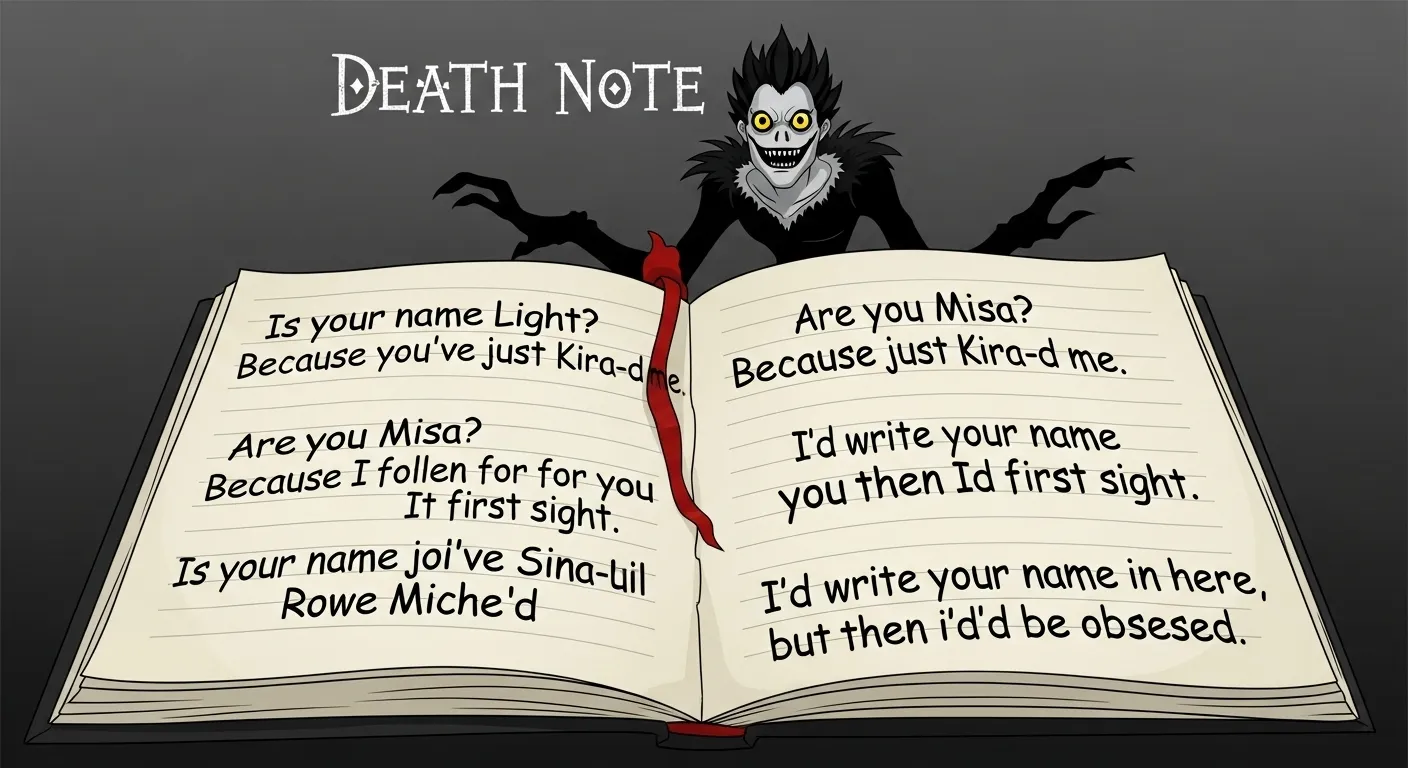 DEATH NOTE
Is your name Light?
Because you've just Kira-d me.
Are you Misa?
Because I follen for for you
It first sight.
Is your name joi've Sina-lil
Rowe Miche'd
Are you Misa?
Because just Kira-d me.
I'd write your name
you then Id first sight.
I'd write your name in here,
but then i'd'd be obsesed.